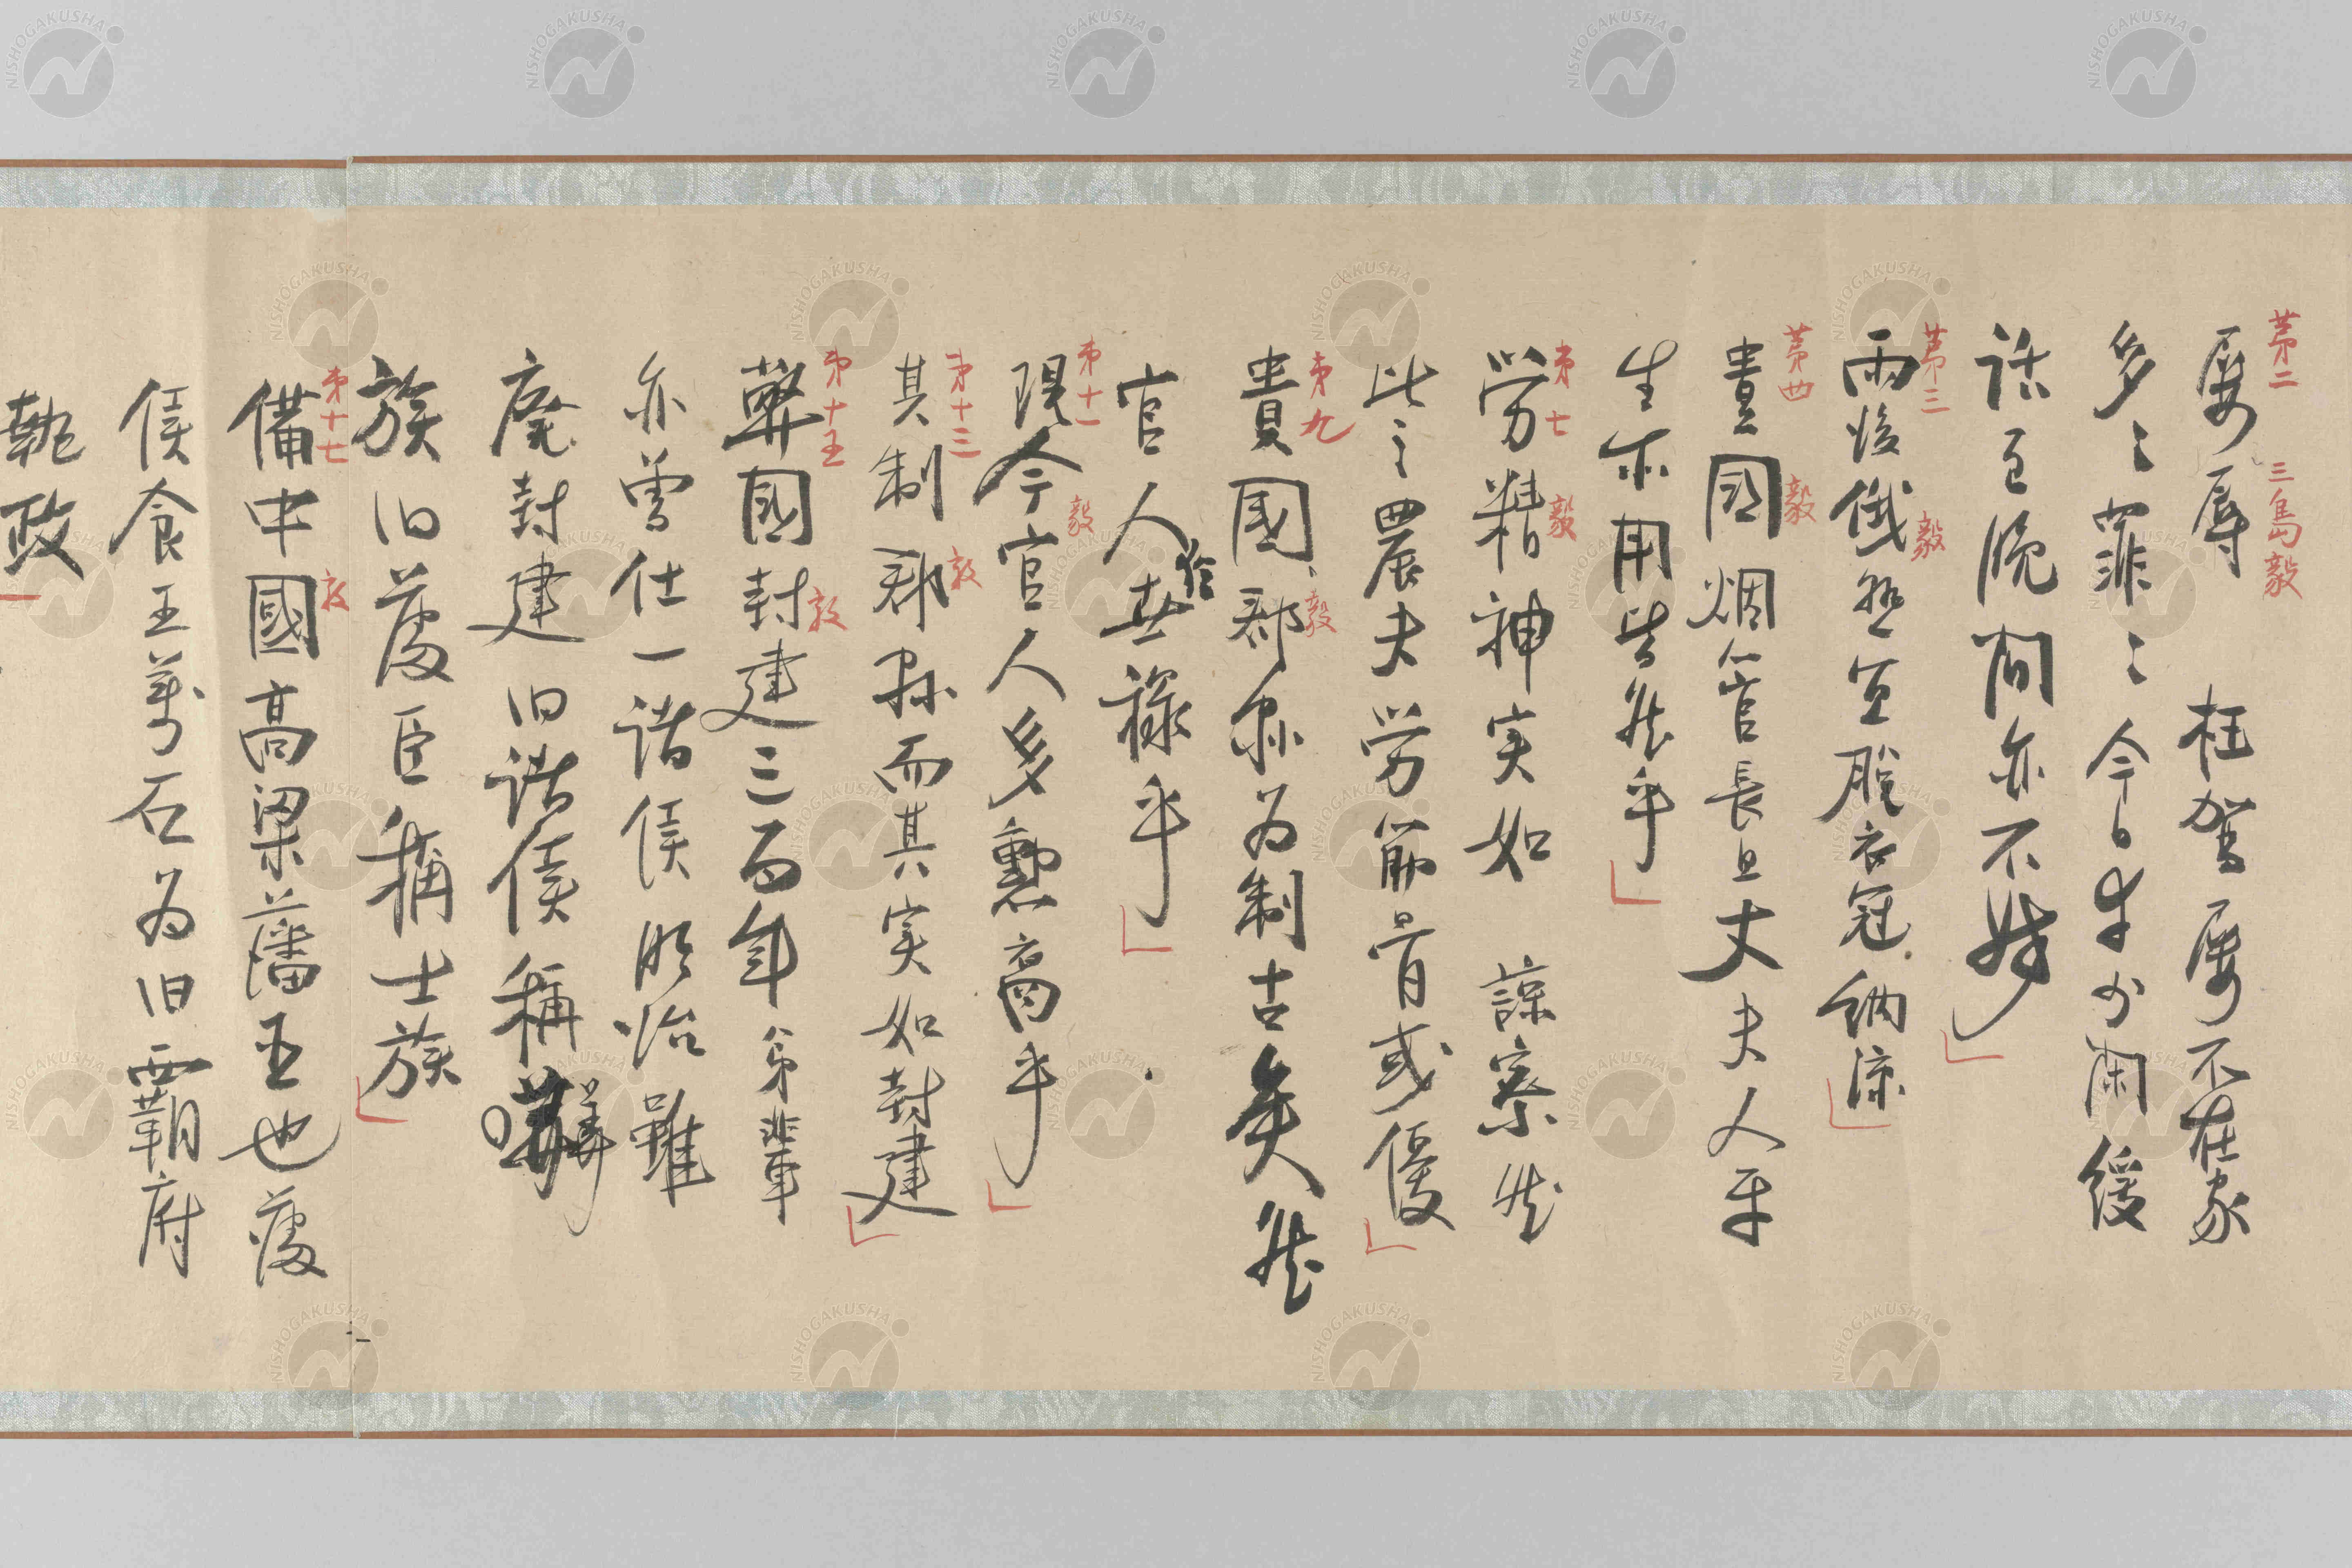 第二 三島毅
屡辱 枉駕屡不在家
多〻罪〻今日幸少閑緩
話至晩間亦不妨
第三 毅
雨後俄熱宜脱衣冠納涼
第四 毅
貴國烟管長且丈夫人平
生亦用者此乎
第七 毅
労精神実如 諒察然
比之農夫労筋骨或優
第九 毅
貴國郡縣為制古矣然
官人無俸禄乎
第十一 毅
現今官人多懃高乎
第十三 毅
其制郡縣而其実如封建
第十五 毅
弊國封建三百年弟輩
亦曽仕一諸侯明治雖
廃封建旧諸侯稱華
族旧藩臣稱士族
第十七 毅
備中國高梁藩臣也藩
侯食五萬石為旧覇府
執政
NISHOGAKUSHA